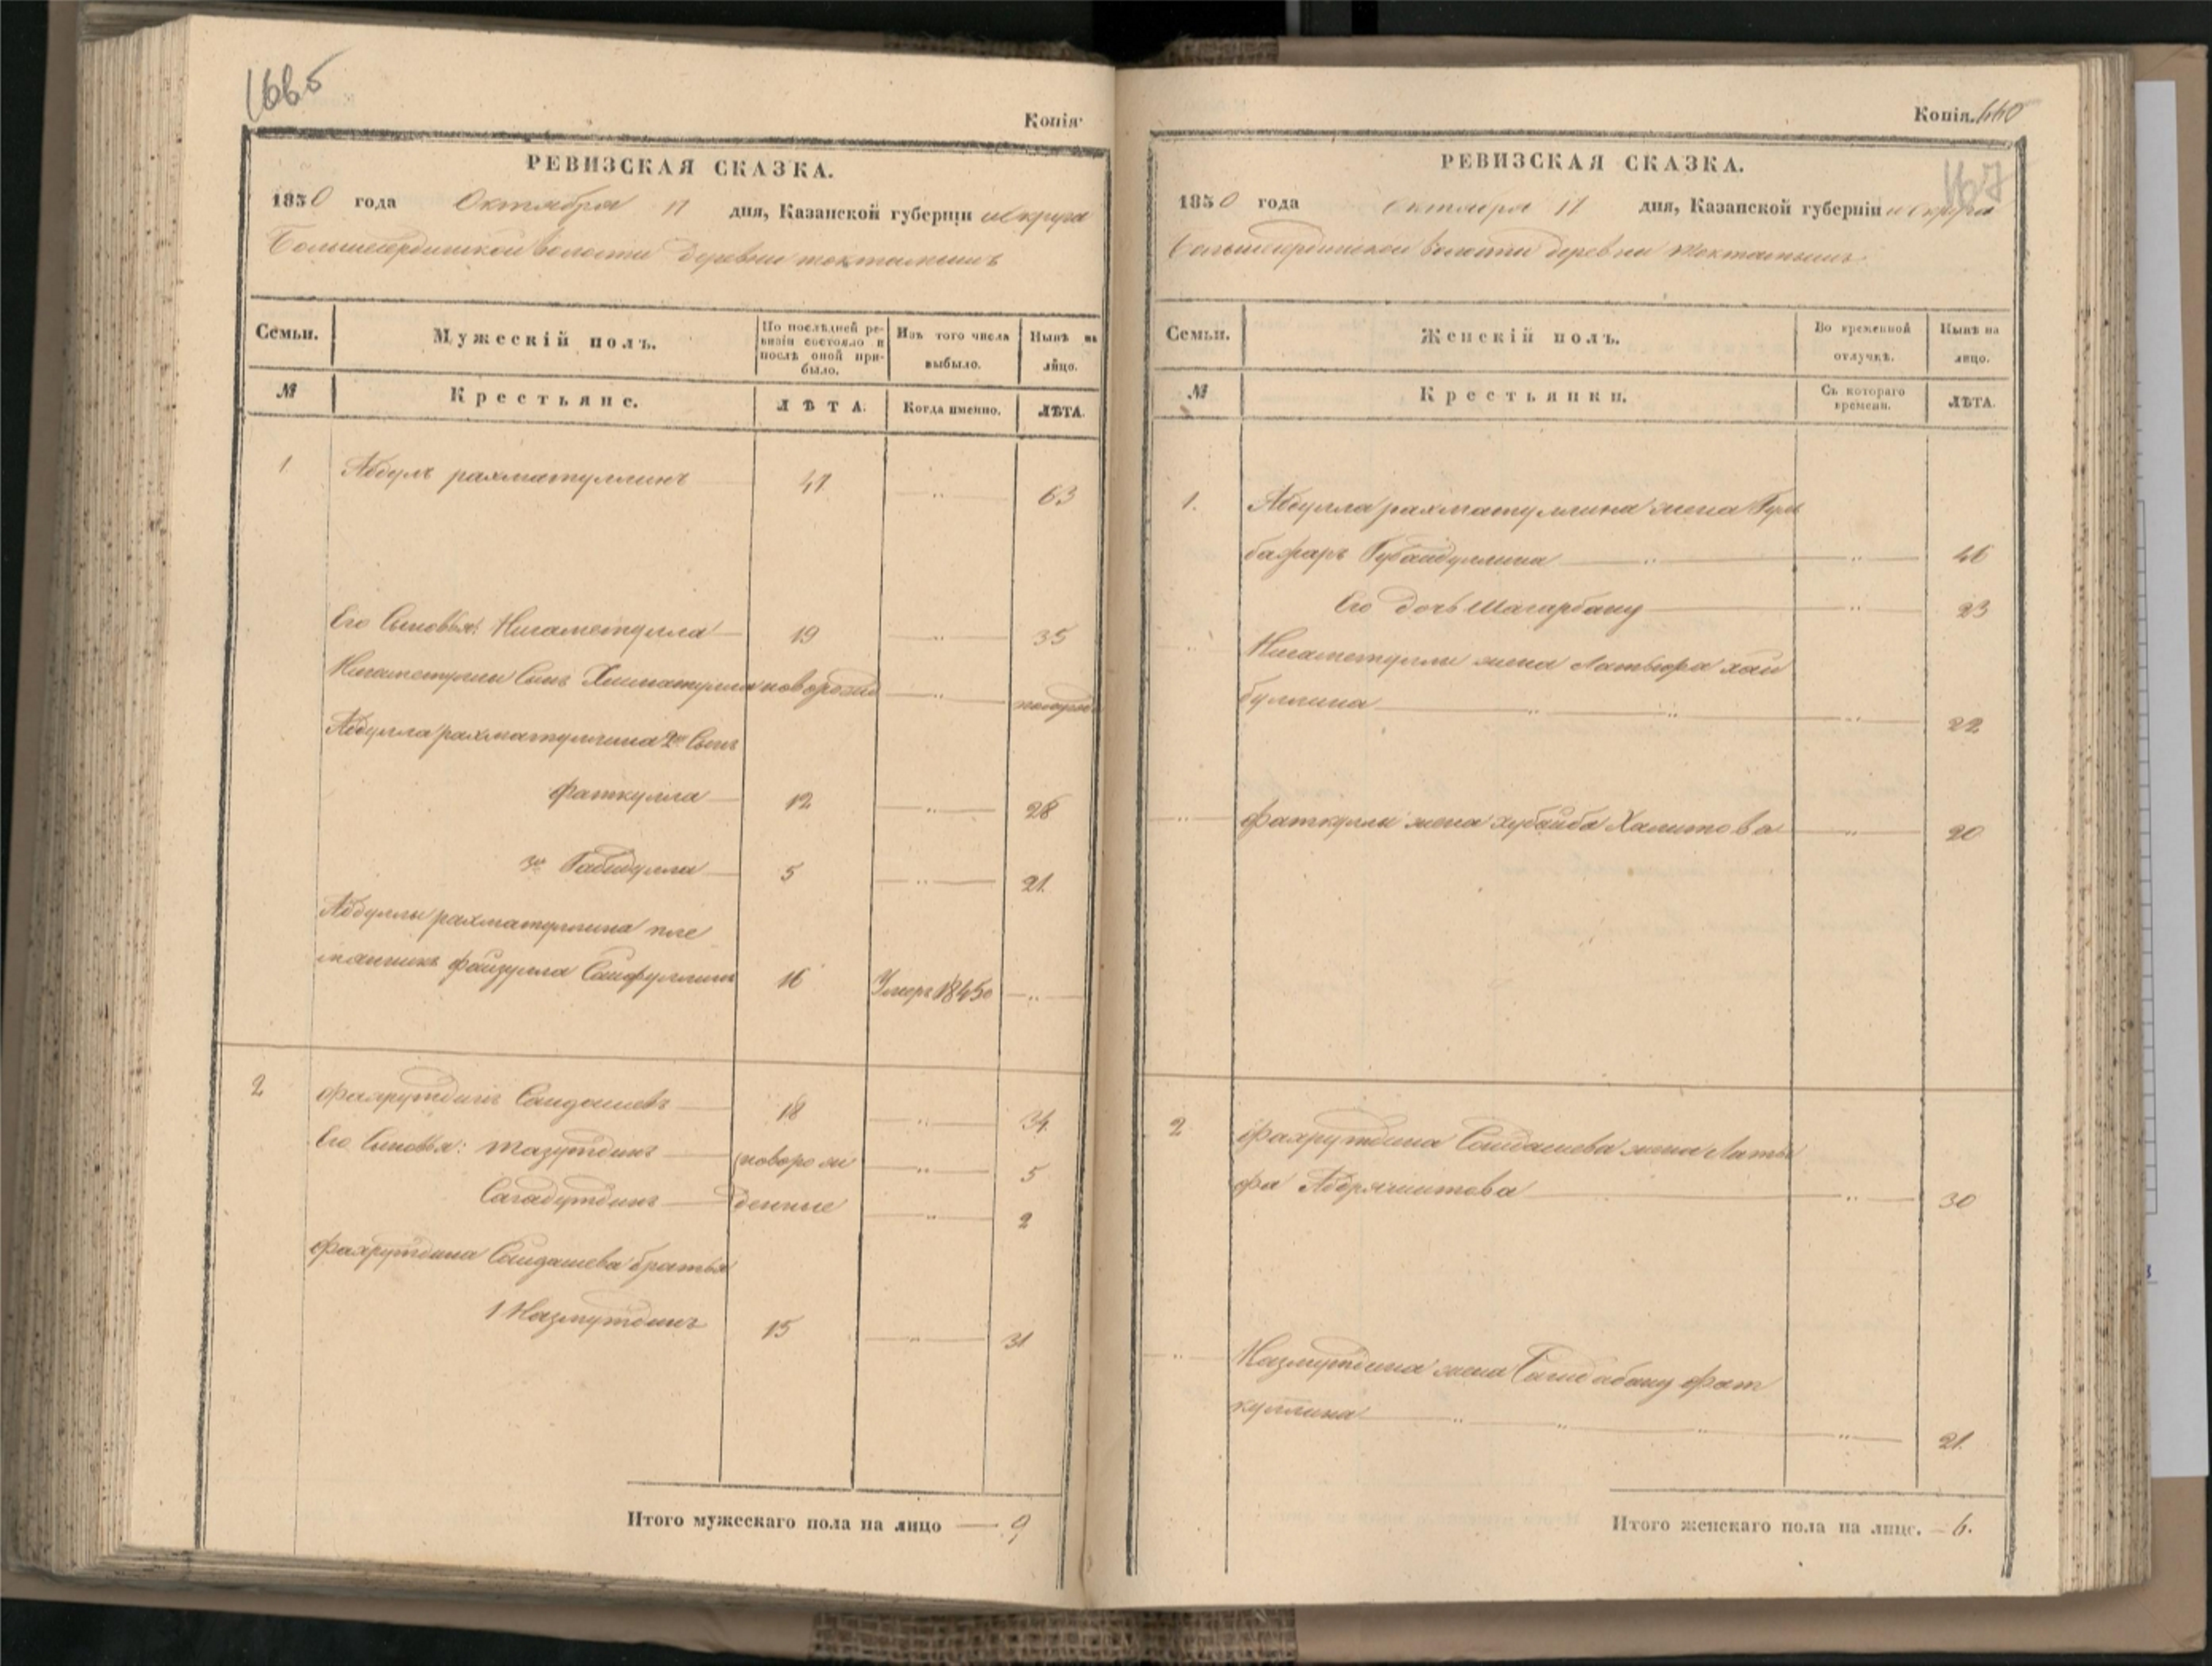 166б
Копія
РЕВИЗСКАЯ СКАЗКА.
1850 года Октября 11 дня, Казанской губерніи и Округа
Большесердинской волости деревни токтамышъ
Семьи. Мужескій полъ. По послѣдней ревизіи состояло и послѣ оной прибыло. Изъ того числа выбыло. Нынѣ на лицо.
№ Крестьяне. ЛѢТА. Когда именно. ЛѢТА.
1 Абдулъ рахматуллинъ 47 " 63
Его Сыновья: Нигаметулла 19 " 35
Нигаметуллы Сынъ новорожд "
Абдулла рахматуллина 2й Сынъ
фаткулла 12 " 28
3й Габидулла 5 " 21
Абдуллы рахматуллина пле
мянникъ файзулла Сайфуллинъ 16 Умеръ 1845о "
2 фахрутдинъ Саидашевъ 18 " 34
Его Сыновья: тазутдинъ новорож " 5
Сагадутдинъ денные " 2
фахрутдина Саидашева братья
1 Назмутдинъ 15 " 31
Итого мужескаго пола на лицо — 9,
Копія. 660
167
РЕВИЗСКАЯ СКАЗКА.
1850 года октября 11 дня, Казанской губерніи и округа
Большесердинской волости деревни токтамышъ
Семьи. Женскій полъ. Во временной отлучкѣ. Нынѣ на лицо.
№ Крестьянки. Съ котораго времени. ЛѢТА.
1. Абдулла рахматуллина жена Гуль
бафаръ Губайдуллина " " 46
Его дочь Шагарбану " 23
" Нигаметуллы жена хай
буллина " " " 22
" фаткуллы жена хубайба Халитова " 20
2 фахрутдина Саидашева жена Латы
фа Абдряшитова " 30
" Назмутдина жена фат
куллина " " " " 21.
Итого женскаго пола на лицо. — 6.